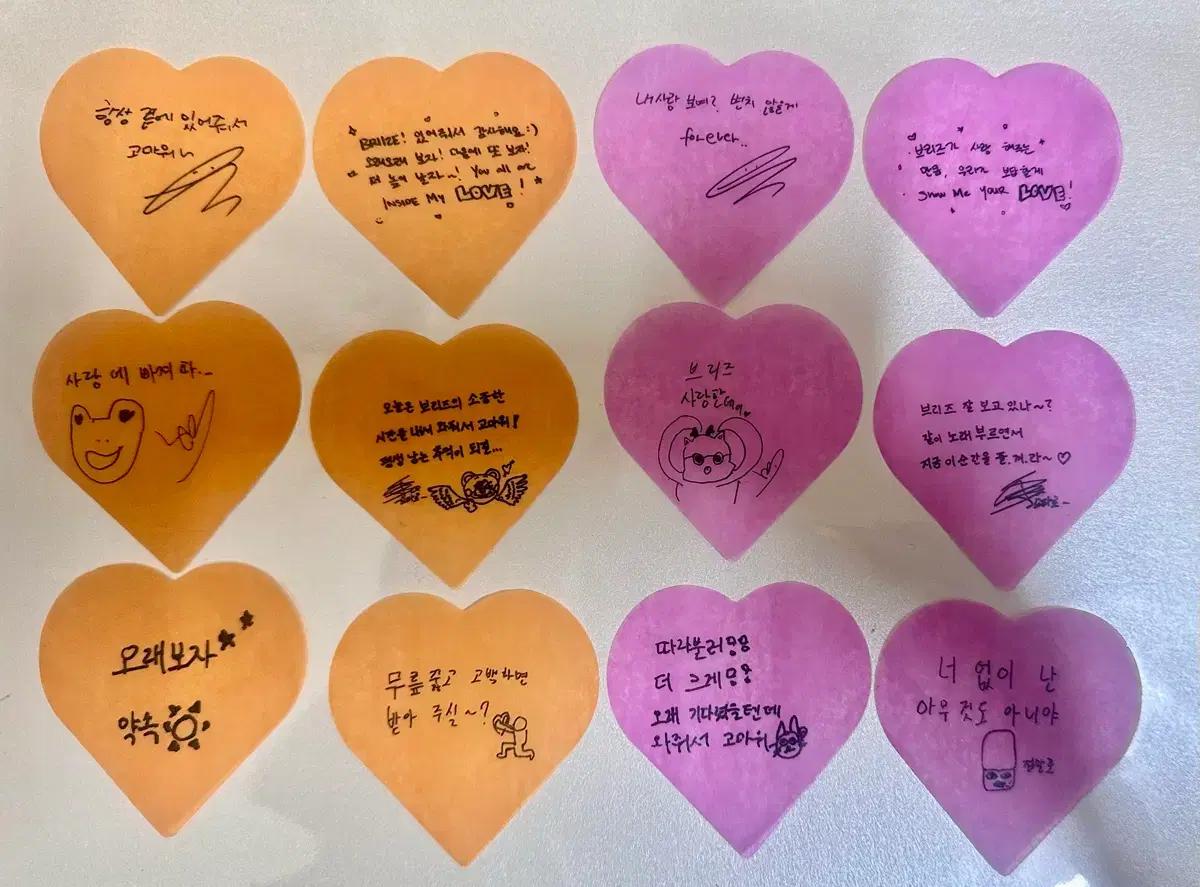 항상 곁에 있어줘서
고마워~
BRIIZE! 있어줘서 감사해요 :)
오래오래 보자! 다음에 또 보자!
더 높이 날자~! You all are
INSIDE My LOVE!
내사랑 보여? 변치 않을게
forever..
브리즈가 사랑 해주는
만큼, 우리가 보답할게
Show Me Your LOVE!
사랑 에 빠져 따..
오늘은 브리즈의 소중한
시간을 내서 와줘서 고마워!
평생 남는 추억이 되길...
브리즈
사랑한데이
브리즈 잘 보고 있나~?
같이 노래 부르면서
지금 이 순간을 즐.겨.라~♡
오래보자
약속
무릎 꿇고 고백하면
받아 주실~?
따라불러용용
더 크게용용
오래 기다렸을텐데
와줘서 고마워
너 없이 난
아무 것도 아니야